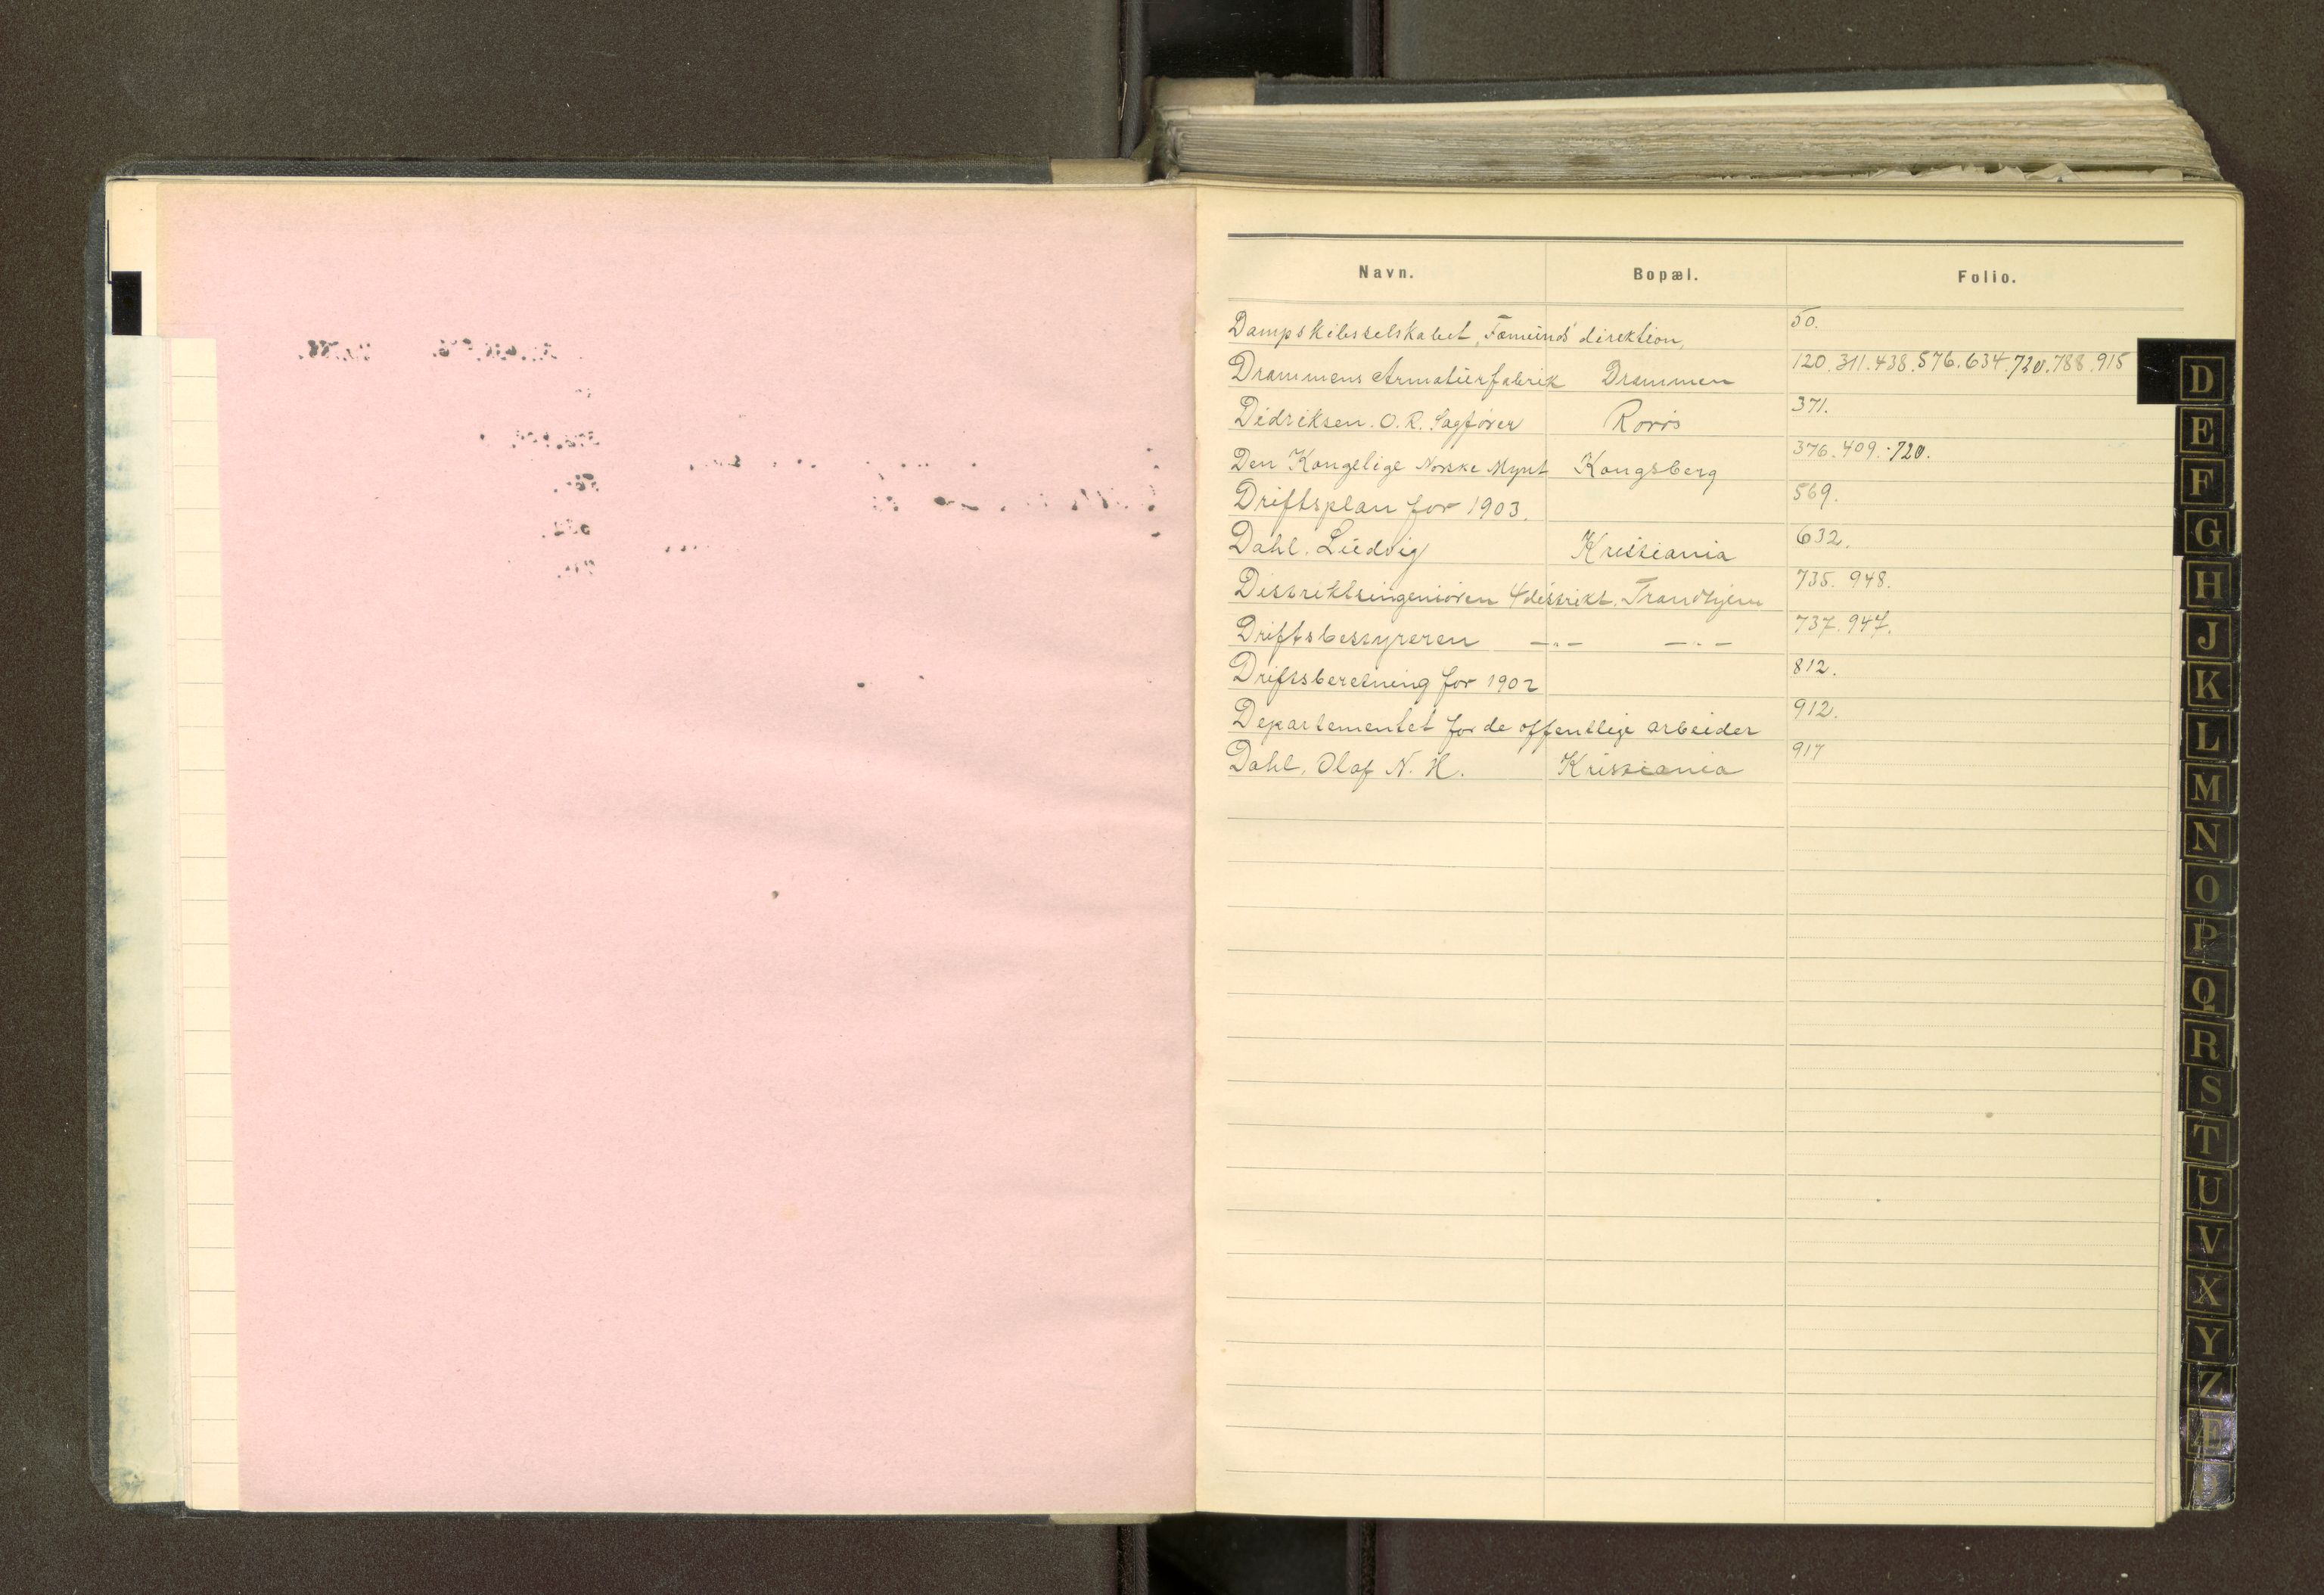 Navn. Bopæl. Folio.
Dampskibsselskabet „Fæmund" direktion, 50.
Drammens Armaturfabrik Drammen 120. 311. 438. 576. 634. 720. 788. 915
Didriksen. O. R. Sagfører Røros 371.
Den Kongelige Norske Mynt Kongsberg 376. 409. 720.
Driftsplan for 1903. 569.
Dahl. Ludvig Kristiania 632.
Distriktsingeniøren 4 distrikt. Trondhjem 735. 948.
Driftsbestyreren —"— —"— 737. 947.
Driftsberetning for 1902 812.
Departementet for de offentlige arbeider 912.
Dahl, Olaf N. H. Kristiania 917
D
E
F
G
H
J
K
L
M
N
O
P
Q
R
S
T
U
V
X
Y
Z
Æ